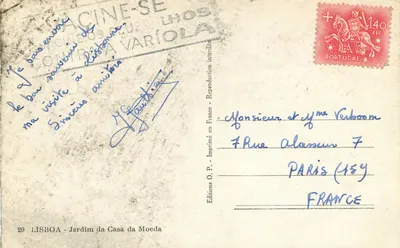 VACINE-SE
CONTRA A VARÍOLA
Je vous envoie
le bon souvenir de
ma visite à Lisbonne
Sincères amitiés
29 LISBOA - Jardim da Casa da Moeda
Editions O. P. - Imprimé en France - Reproduction interdite
1$40
PORTUGAL
Monsieur et Mme Verboom
7 Rue Alasseur 7
PARIS (15e)
FRANCE